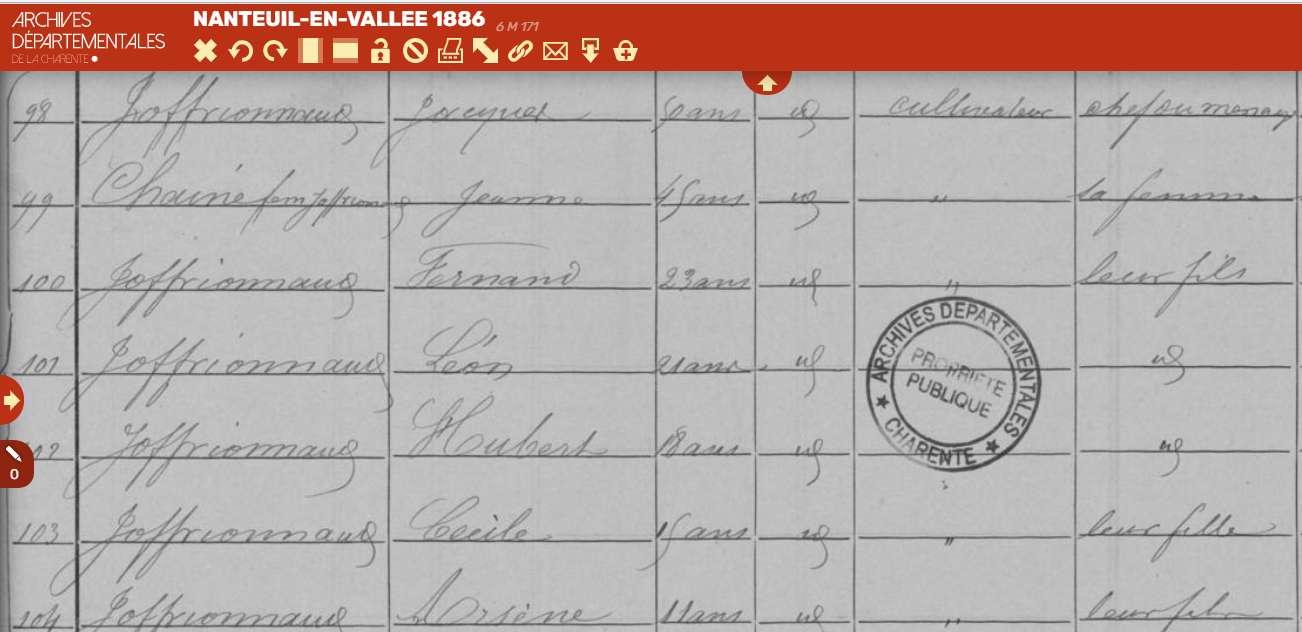 ARCHIVES
DÉPARTEMENTALES
DE LA CHARENTE
NANTEUIL-EN-VALLEE 1886 6 M 171
98 Joffrionnaud Jacques 50 ans id cultivateur chef du menage
99 Chainé fem Joffrionnaud Jeanne 45 ans id " sa femme
100 Joffrionnaud Fernand 23 ans id " leur fils
101 Joffrionnaud Léon 21 ans id id
102 Joffrionnaud Hubert 18 ans id id
103 Joffrionnaud Cécile 15 ans id " leur fille
104 Joffrionnaud Arsène 11 ans id " leur fils
ARCHIVES DEPARTEMENTALES
PROPRIETE
PUBLIQUE
★ CHARENTE ★
0